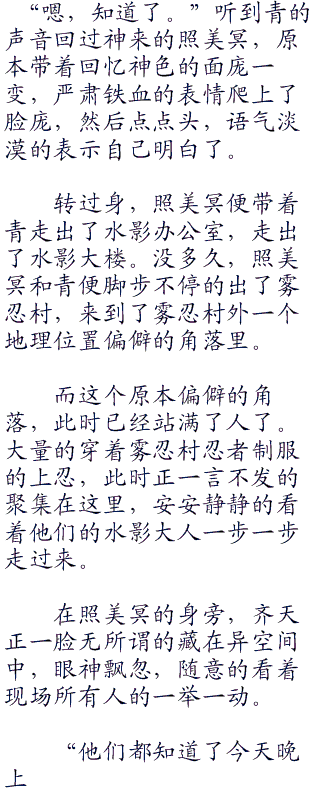 “嗯，知道了。”听到青的
声音回过神来的照美冥，原
本带着回忆神色的面庞一
变，严肃铁血的表情爬上了
脸庞，然后点点头，语气淡
漠的表示自己明白了。
转过身，照美冥便带着
青走出了水影办公室，走出
了水影大楼。没多久，照美
冥和青便脚步不停的出了雾
忍村，来到了雾忍村外一个
地理位置偏僻的角落里。
而这个原本偏僻的角
落，此时已经站满了人了。
大量的穿着雾忍村忍者制服
的上忍，此时正一言不发的
聚集在这里，安安静静的看
着他们的水影大人一步一步
走过来。
在照美冥的身旁，齐天
正一脸无所谓的藏在异空间
中，眼神飘忽，随意的看着
现场所有人的一举一动。
“他们都知道了今天晚
上